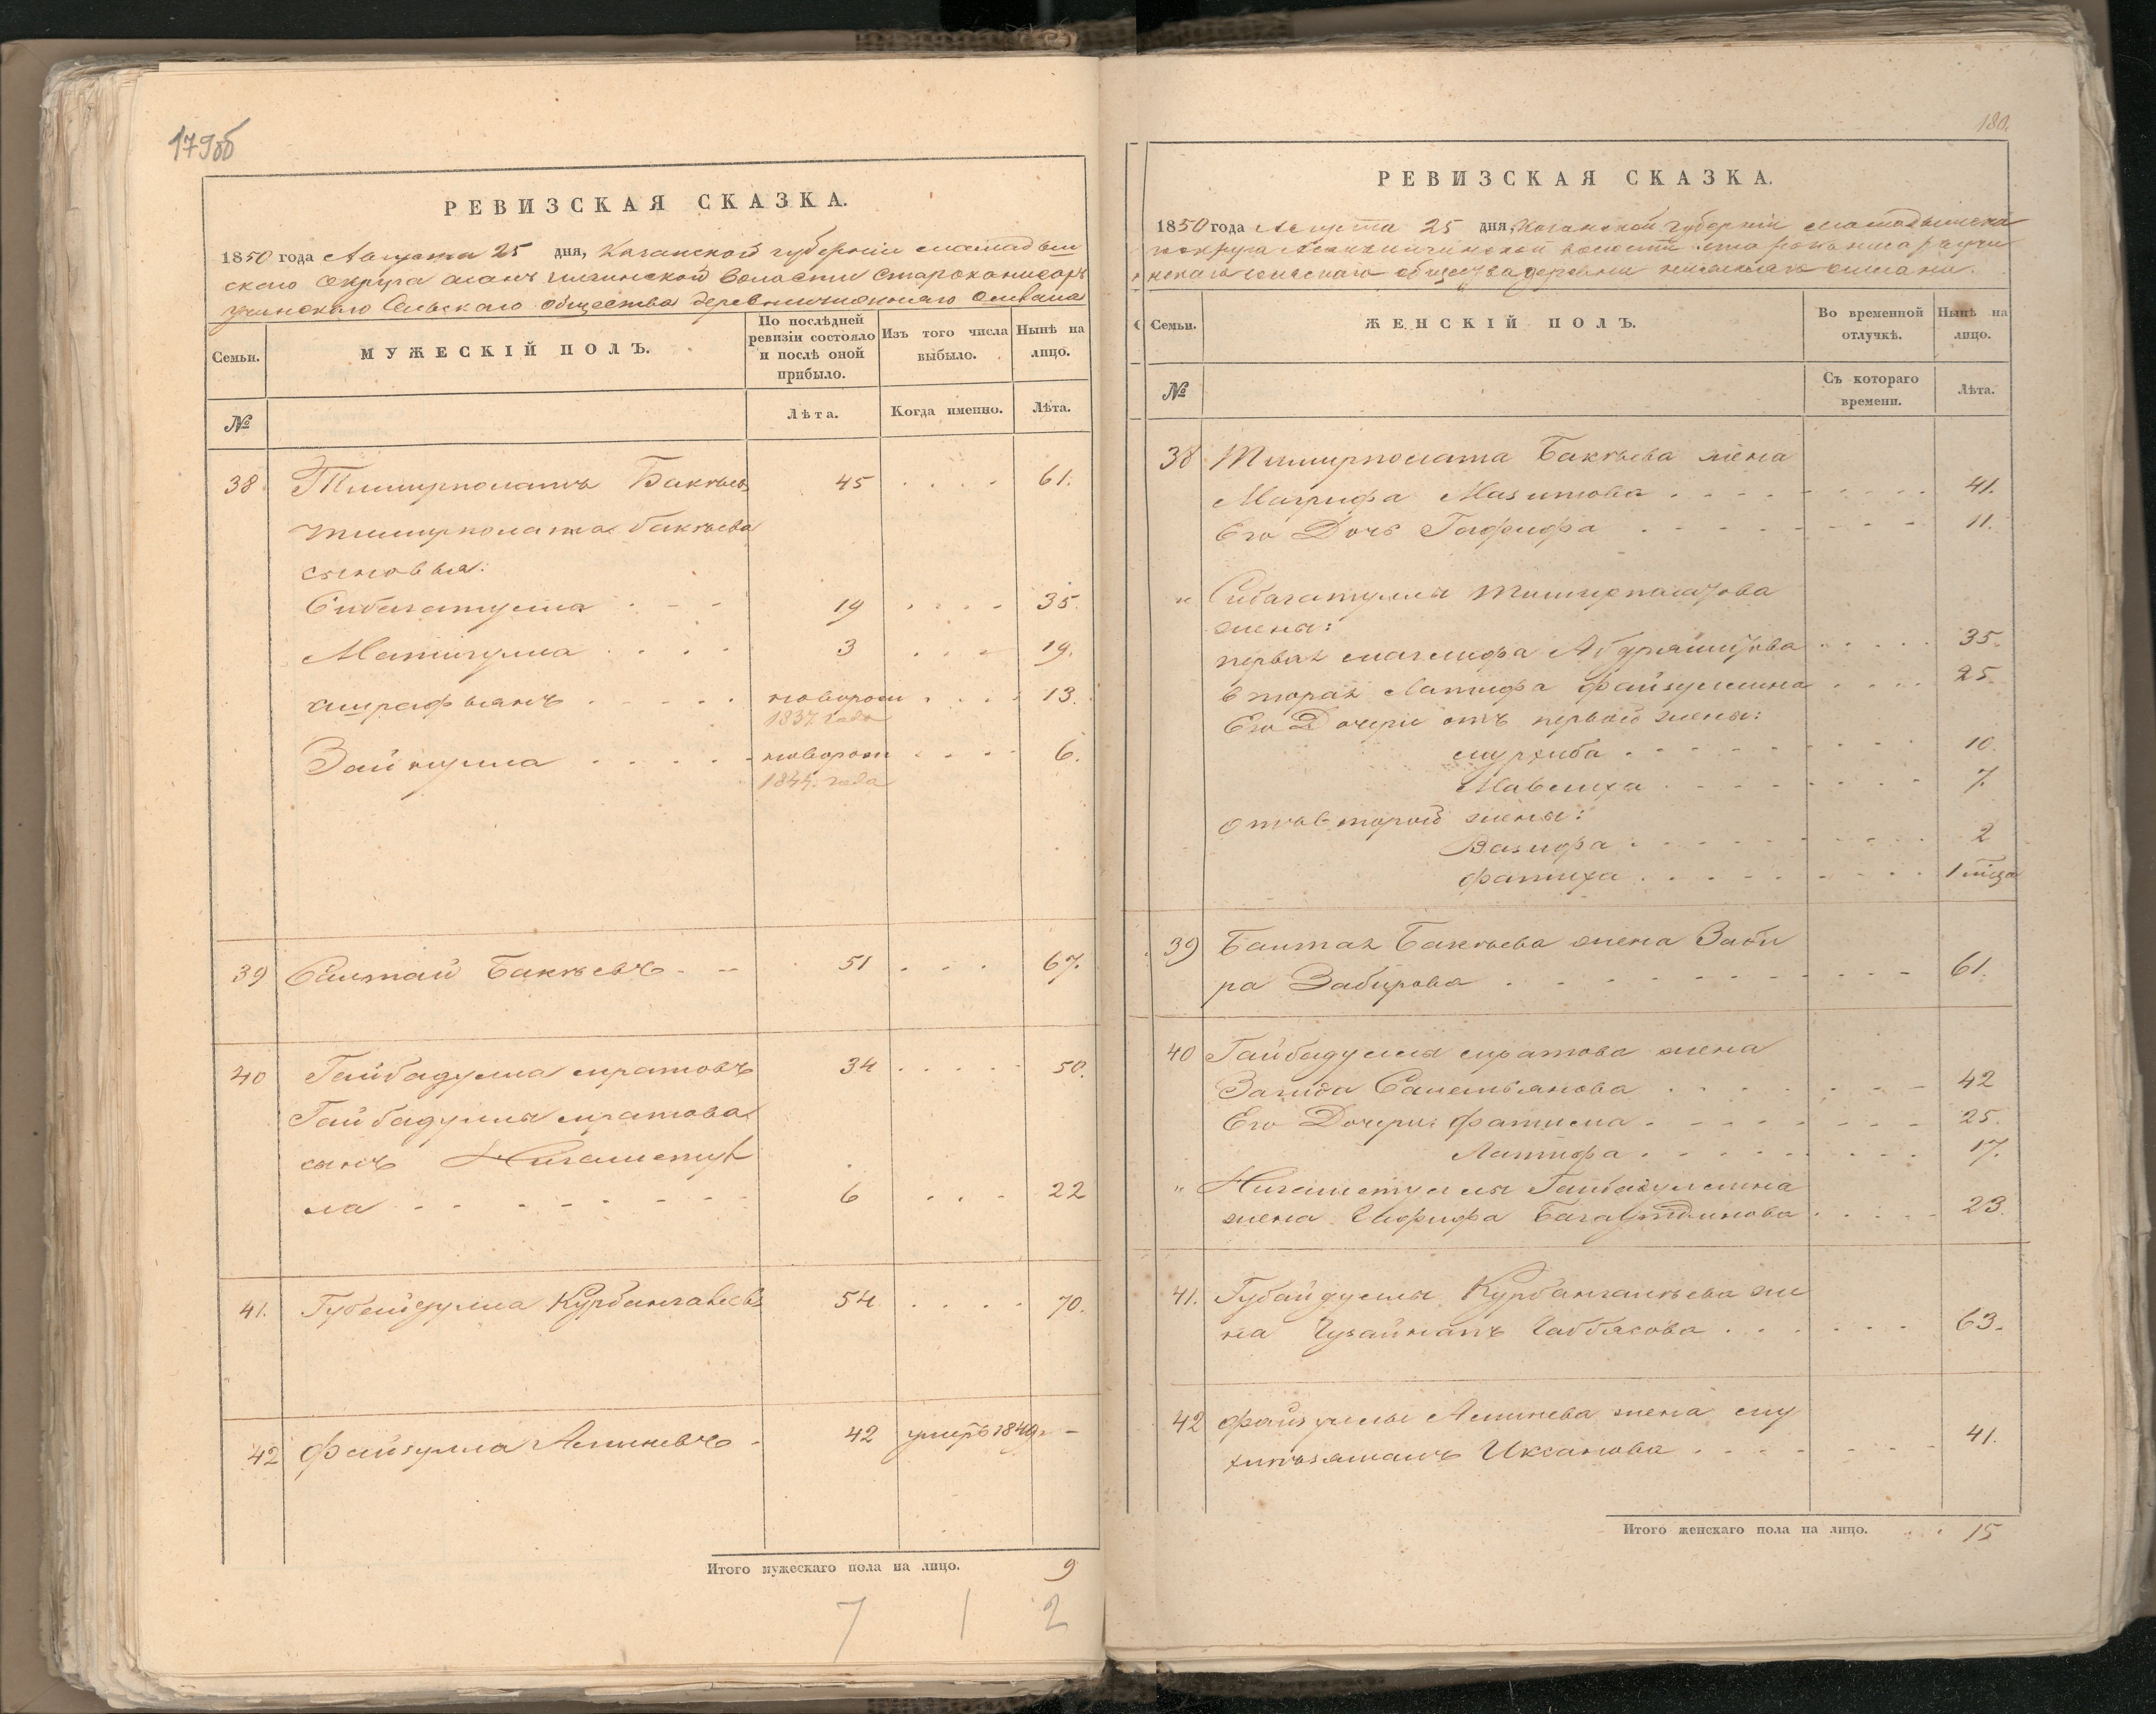 179об
РЕВИЗСКАЯ СКАЗКА.
1850 года Августа 25 дня, Казанской губернии Мамадыш
скаго Округа волости
Сельскаго общества деревни
Семьи.
МУЖЕСКІЙ ПОЛЪ.
По послѣдней ревизіи состояло и послѣ оной прибыло.
Изъ того числа выбыло.
Нынѣ на лицо.
№
Лѣта.
Когда именно.
Лѣта.
38 Тимирполатъ Бакѣевъ 45 . . . . 61.
Тимирполата Бакѣева
сыновья:
Сибагатулла . - - 19 . . . - 35.
Матигулла . . . . 3 . . . - 19.
Ашрафьянъ . - - . . новорож . . . . 13.
1837 года
Зайнулла . . . . - новорож . . . - 6.
1844 года
39 Сайтай Бакѣевъ - - 51 . . . . 67.
40 Гайбадулла Муратовъ 34 . . . . . 50.
Гайбадуллы Муратова
сынъ Нигаметул
ла - - - - - - - 6 . . . 22
41. Губейдулла Курбангалеевъ 54 . . . . 70.
42 Файзулла Аминевъ - 42 умеръ 1849 г -
Итого мужескаго пола на лицо. 9
7 1 2
180.
РЕВИЗСКАЯ СКАЗКА.
1850 года Августа 25 дня, Казанской губерніи Мамадышска
го округа волости
общества деревни
Семьи.
ЖЕНСКІЙ ПОЛЪ.
Во временной отлучкѣ.
Нынѣ на лицо.
№
Съ котораго времени.
Лѣта.
38 Тимирполата Бакѣева жена
Магрифа Мазитова . . . . . . . . . 41.
Его Дочь Гафифа . - - - - - - 11.
" Сибагатуллы Тимирполатова
жены:
первая Абдрашитова . . . . . 35.
Вторая Латифа Файзуллина . . . . 25.
Его Дочери отъ первой жены:
10.
Мавлиха . - - - - - - 7.
отъ второй жены:
Вазифа . - - - - - - 2
Фатиха . . . . . . . . . 1 мѣсяца
39 Баитая Бакѣева жена Заби
ра Забирова . . . . . . . . . 61.
40 Гайбадуллы Муратова жена
Загида . . . . . . - 42
Его Дочери: Фатима . - - - - - - 25.
Латифа . . . . . . . . . 17.
" Нигаметуллы Гайбадуллина
жена Багаутдинова . . . . . 23.
41. Губайдуллы Курбангалѣева же
на . . . . . . . 63.
42 Файзуллы Аминева жена Му
Иксанова . . . - - - - 41.
Итого женскаго пола на лицо. . . 15